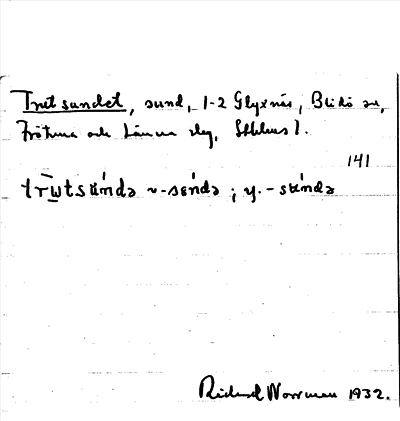 Trutsundet, sund, 1-2 Glyxnäs, Blidö sn,
Frötuna och Länna slg, Sthlms l.
141
trw̄tsúndə ~ -séndə ; y. -súndə
Richard Norrman 1932.